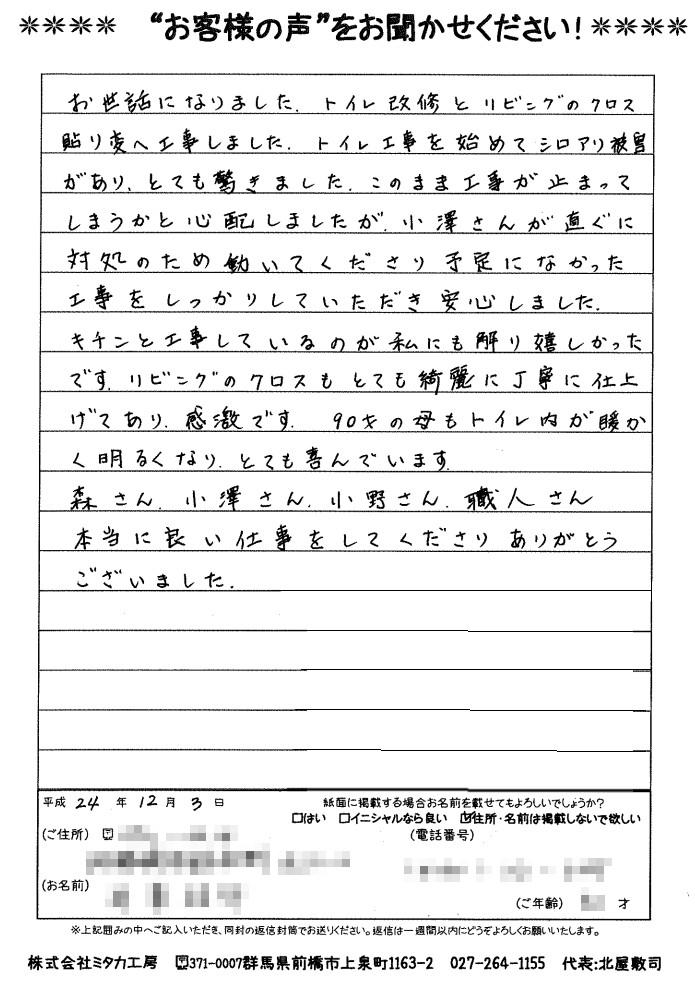 **** “お客様の声”をお聞かせください! ****
お世話になりました. トイレ改修とリビングのクロス
貼り変へ工事しました. トイレ工事を始めてシロアリ被害
があり、とても驚きました. このまま工事が止まって
しまうかと心配しましたが. 小澤さんが直ぐに
対処のため動いてくださり予定になかった
工事をしっかりしていただき安心しました.
キチンと工事しているのが私にも解り嬉しかった
です. リビングのクロスもとても綺麗に丁寧に仕上
げてあり. 感激です. 90才の母もトイレ内が暖か
く明るくなり. とても喜んでいます.
森さん. 小澤さん. 小野さん. 職人さん
本当に良い仕事をしてくださりありがとう
ございました.
平成 24 年 12 月 3 日 紙面に掲載する場合お名前を載せてもよろしいでしょうか?
□はい □イニシャルなら良い ☑住所・名前は掲載しないで欲しい
(ご住所) 〒 (電話番号)
(お名前)
(ご年齢) 才
※上記囲みの中へご記入いただき、同封の返信封筒でお送りください。返信は一週間以内にどうぞよろしくお願いいたします。
株式会社ミタカ工房 〒371-0007群馬県前橋市上泉町1163-2 027-264-1155 代表:北屋敷司